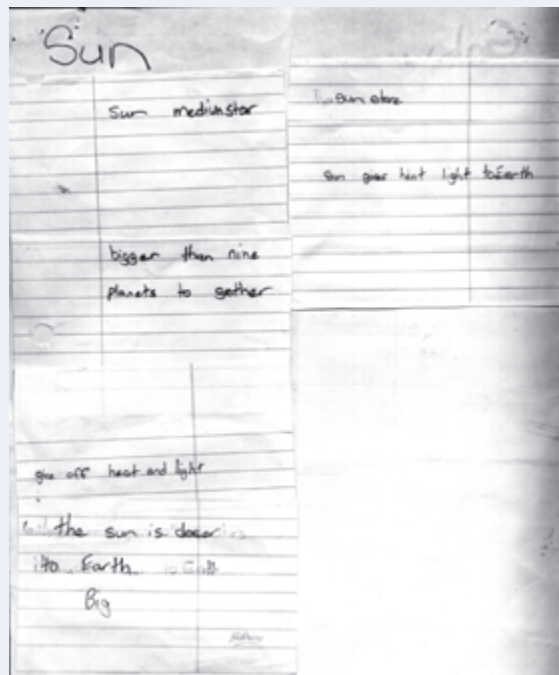 Sun
Sun medium star
bigger than nine
planets to gether
give off heat and light
the sun is closer
to Earth
Big
Sun store
Sun gives heat light to Earth